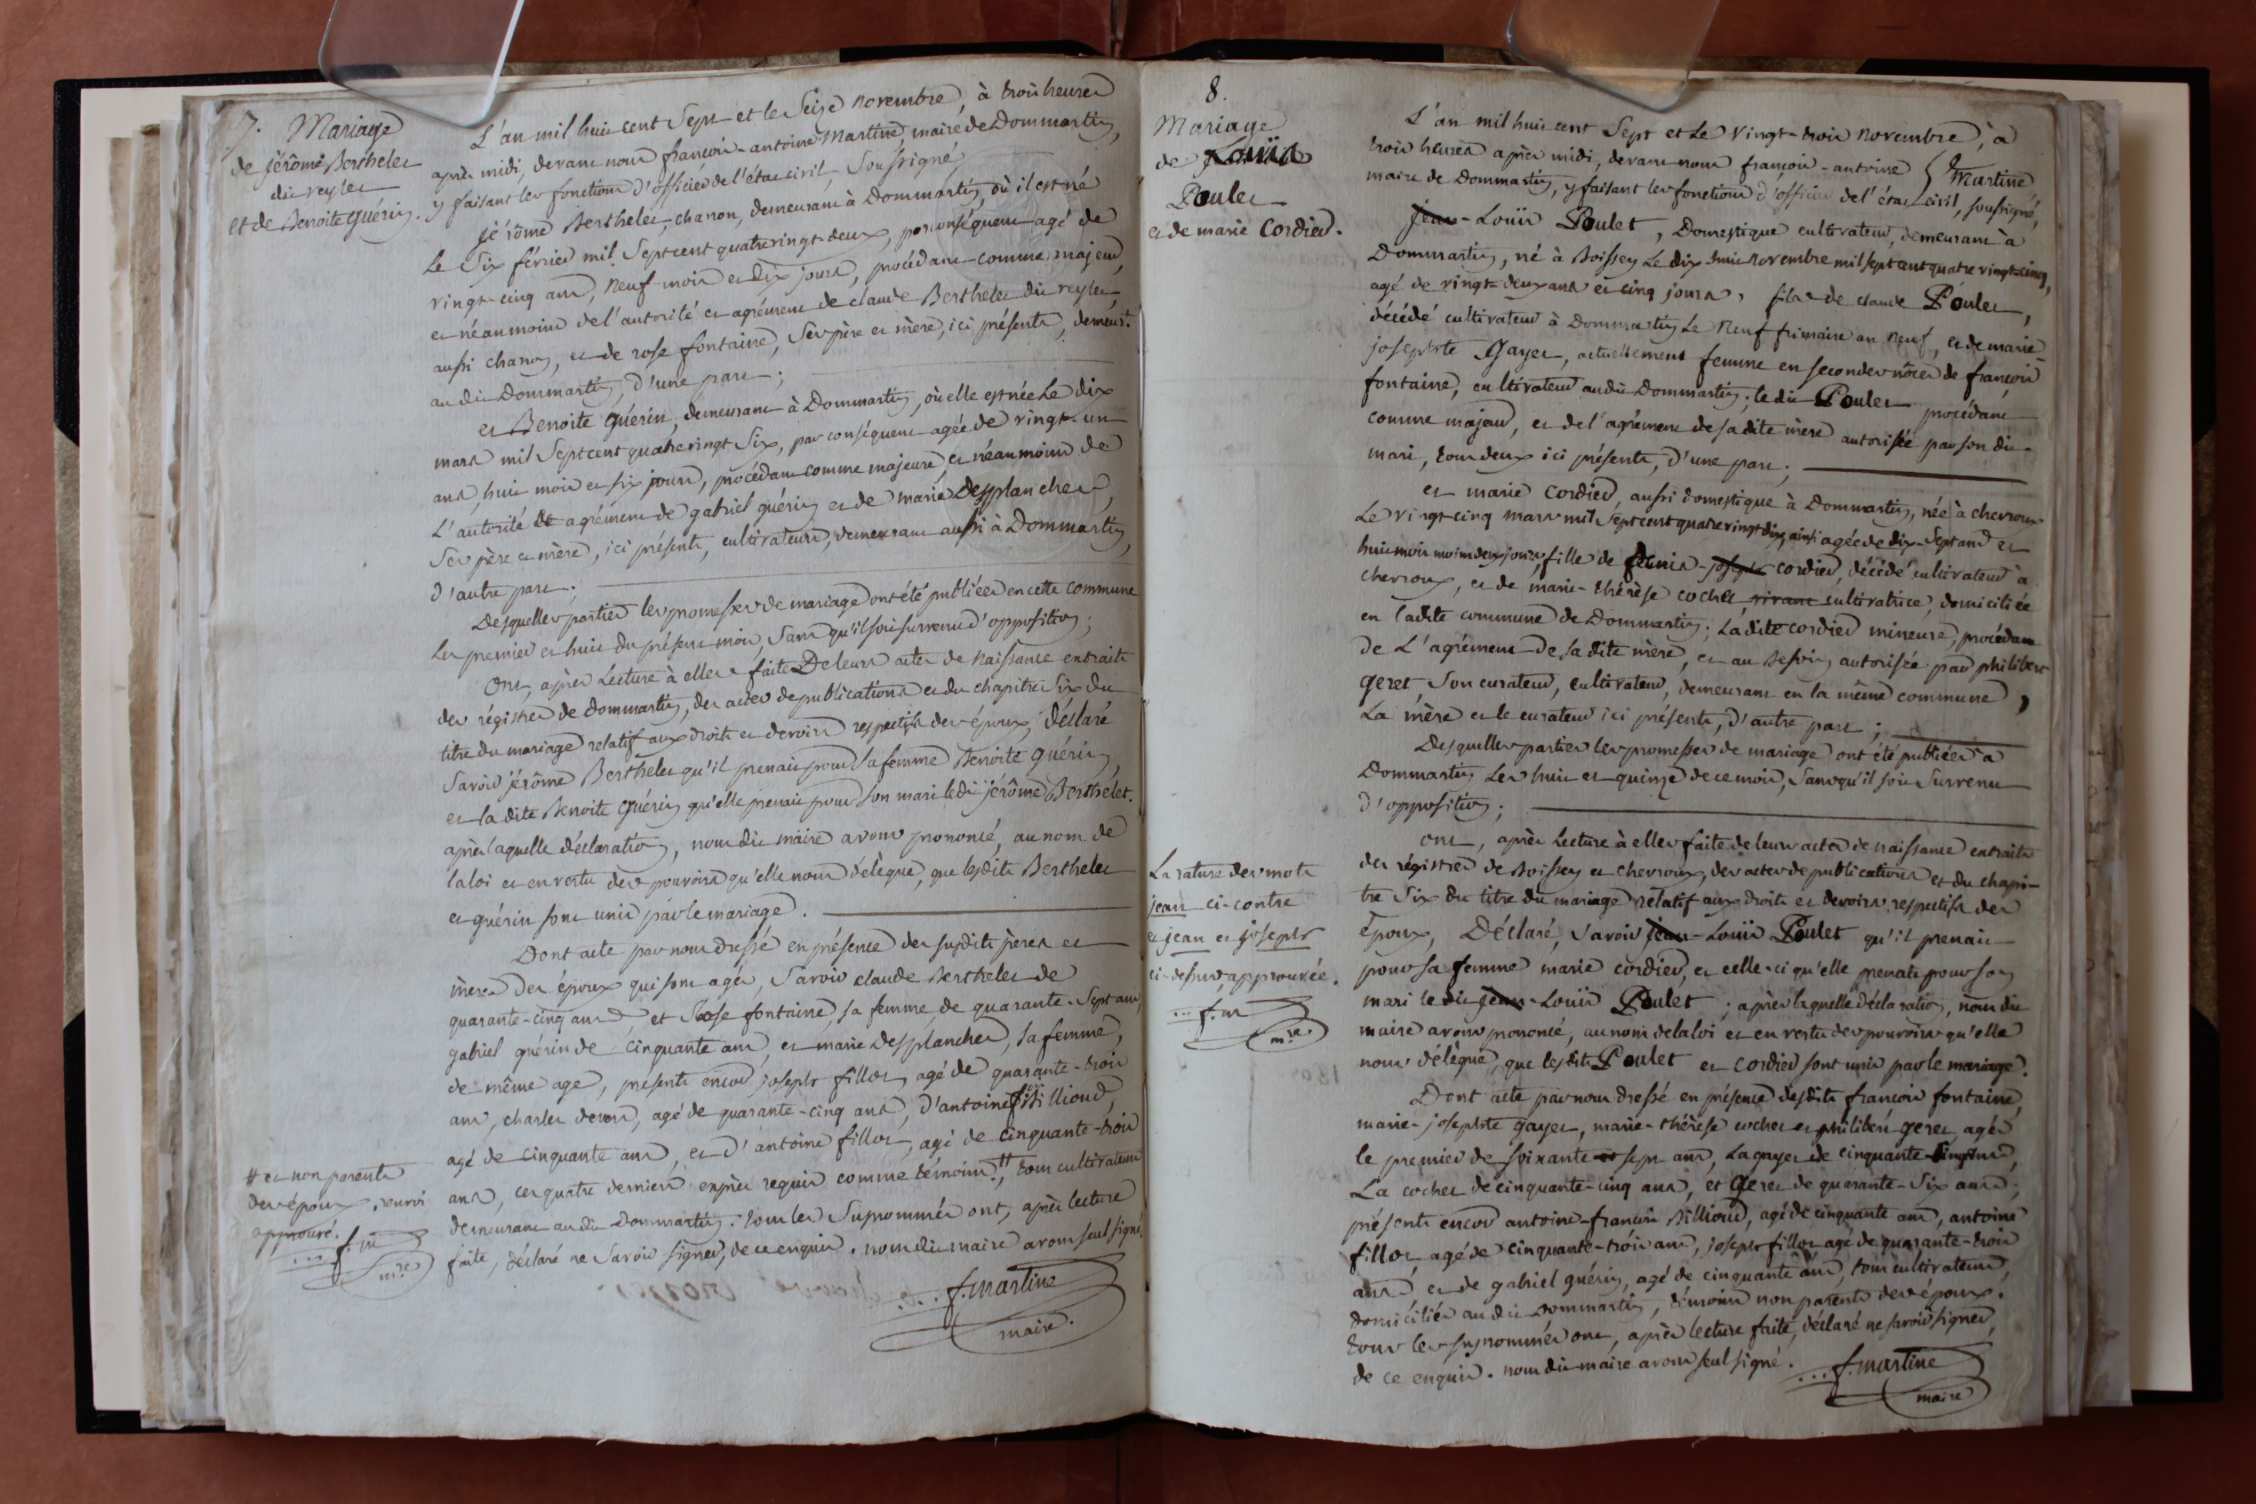 7. Mariage
de jérôme Berthelet
dit reylet
et de Benoite guérin.
L'an mil huit cent sept et le seize novembre, à trois heures
après midi, devant nous françois-antoine Martine, maire de Dommartin,
y faisant les fonctions d'officier de l'état civil, soussigné,
jérôme Berthelet, charron, demeurant à Dommartin, où il est né
le six février mil sept cent quatre vingt-deux, par conséquent agé de
vingt-cinq ans, neuf mois et dix jours, procédant comme majeur,
et néanmoins de l'autorité et agrément de claude Berthelet dit reylet,
aussi charron, et de rose fontaine, ses père et mère, ici présents, demeurt.
au dit Dommartin, d'une part;
et Benoite guérin, demeurant à Dommartin, où elle est née le dix
mars mil sept cent quatre vingt six, par conséquent agée de vingt-un
ans, huit mois et six jours, procédant comme majeure, et néanmoins de
l'autorité et agrément de gabriel guérin et de marie Desplanches,
ses père et mère, ici présents, cultivateurs, demeurant aussi à Dommartin,
d'autre part;
Desquelles parties les promesses de mariage ont été publiées en cette commune
les premier et huit du présent mois, sans qu'il soit survenu d'opposition;
Ont, après lecture à elles faite De leurs actes de naissance extraits
des régistres de dommartin, des actes de publications et du chapitre six du
titre du mariage relatif aux droits et devoirs respectifs des époux, déclaré
savoir jérôme Berthelet qu'il prenait pour sa femme Benoite guérin,
et la dite Benoite guérin qu'elle prenait pour son mari ledit jérôme Berthelet.
après laquelle déclaration, nous dit maire avons prononcé, au nom de
la loi et en vertu des pouvoirs qu'elle nous délègue, que lesdits Berthelet
et guérin sont unis par le mariage.
Dont acte par nous dressé en présence des susdits pères et
mères des époux qui sont agés, savoir claude Berthelet de
quarante-cinq ans, et Rose fontaine, sa femme de quarante-sept ans,
gabriel guérin de cinquante ans, et marie Desplanches, sa femme,
de même age, présents encor joseph fillot, agé de quarante-trois
ans, charles devors, agé de quarante-cinq ans, d'antoine fs. Billioud,
agé de cinquante ans, et d'antoine fillot, agé de cinquante-trois
ans, ces quatre derniers exprès requis comme témoins #, tous cultivateurs
demeurant au dit Dommartin. tous les susnommés ont, après lecture
faite, déclaré ne savoir signer, de ce enquis. nous dit maire avons seul signé.
# et non parents
des époux. renvoi
approuvé.
... f. m
m.re
... f. martine
maire.
8.
Mariage
de Louis
Poulet
et de marie Cordier.
L'an mil huit cent sept et le vingt-trois novembre, à
trois heures après midi, devant nous françois-antoine { Martine
maire de Dommartin, y faisant les fonctions d'officier de l'état civil, soussigné,
jean-Louis Poulet, Domestique cultivateur, demeurant à
Dommartin, né à Boissey le dix huit novembre mil sept cent quatre vingt-cinq,
agé de vingt-deux ans et cinq jours, fils de claude Poulet,
décédé cultivateur à Dommartin le neuf frimaire an neuf, et de marie-
josephte Gayet, actuellement femme en secondes nôces de françois
fontaine, cultivateur au dit Dommartin; le dit Poulet procédant
comme majeur, et de l'agrément de sa dite mère autorisée par son dit
mari, tous deux ici présents, d'une part;
et marie cordier, aussi domestique à Dommartin, née à chevroux
le vingt-cinq mars mil sept cent quatre vingt dix, ainsi agée de dix-sept ans et
huit mois moins deux jours, fille de denis-joseph cordier, décédé cultivateur à
chevroux, et de marie-thérèse cochet, vivant cultivatrice, domiciliée
en ladite commune de Dommartin; la dite cordier mineure, procédant
de l'agrément de sa dite mère, et au besoin, autorisée par philibert
geret, son curateur, cultivateur, demeurant en la même commune,
la mère et le curateur ici présents, d'autre part;
Desquelles parties les promesses de mariage ont été publiées à
Dommartin les huit et quinze de ce mois, sans qu'il soit survenu
d'opposition;
ont, après lecture à elles faite de leurs actes de naissance extraits
des régistres de Boissey et chevroux, des actes de publications et du chapi-
tre six du titre du mariage relatif aux droits et devoirs respectifs des
Epoux, Déclaré, savoir jean-Louis Poulet qu'il prenait
pour sa femme marie cordier, et celle-ci qu'elle prenait pour son
mari le dit jean-Louis Poulet; après laquelle déclaration, nous dit
maire avons prononcé, au nom de la loi et en vertu des pouvoirs qu'elle
nous délègue, que lesdits Poulet et cordier sont unis par le mariage.
Dont acte par nous dressé en présence desdits françois fontaine,
marie-josephte gayet, marie-thérèse cochet et philibert geret, agés
le premier de soixante et sept ans, la gayet de cinquante cinq ans,
La cochet de cinquante-cinq ans, et Geret de quarante-six ans;
présents encor antoine-françois Billioud, agé de cinquante ans, antoine
fillot, agé de cinquante-trois ans, joseph fillot agé de quarante-trois
ans et de gabriel guérin, agé de cinquante ans, tous cultivateurs,
domiciliés au dit Dommartin, témoins non parents des époux.
tous les susnommés ont, après lecture faite, déclaré ne savoir signer,
de ce enquis. nous dit maire avons seul signé.
... f. martine
maire
La rature des mots
jean ci-contre
et jean et joseph
ci-dessus approuvée.
... f. m
m.re